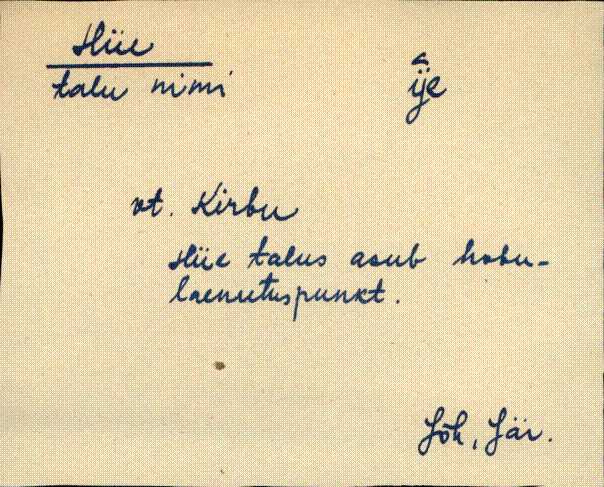 Hiie
talu nimi
ije
vt. Kirbu
Hiie talus asub hobu-
laenutuspunkt.
Jõh, Jär.